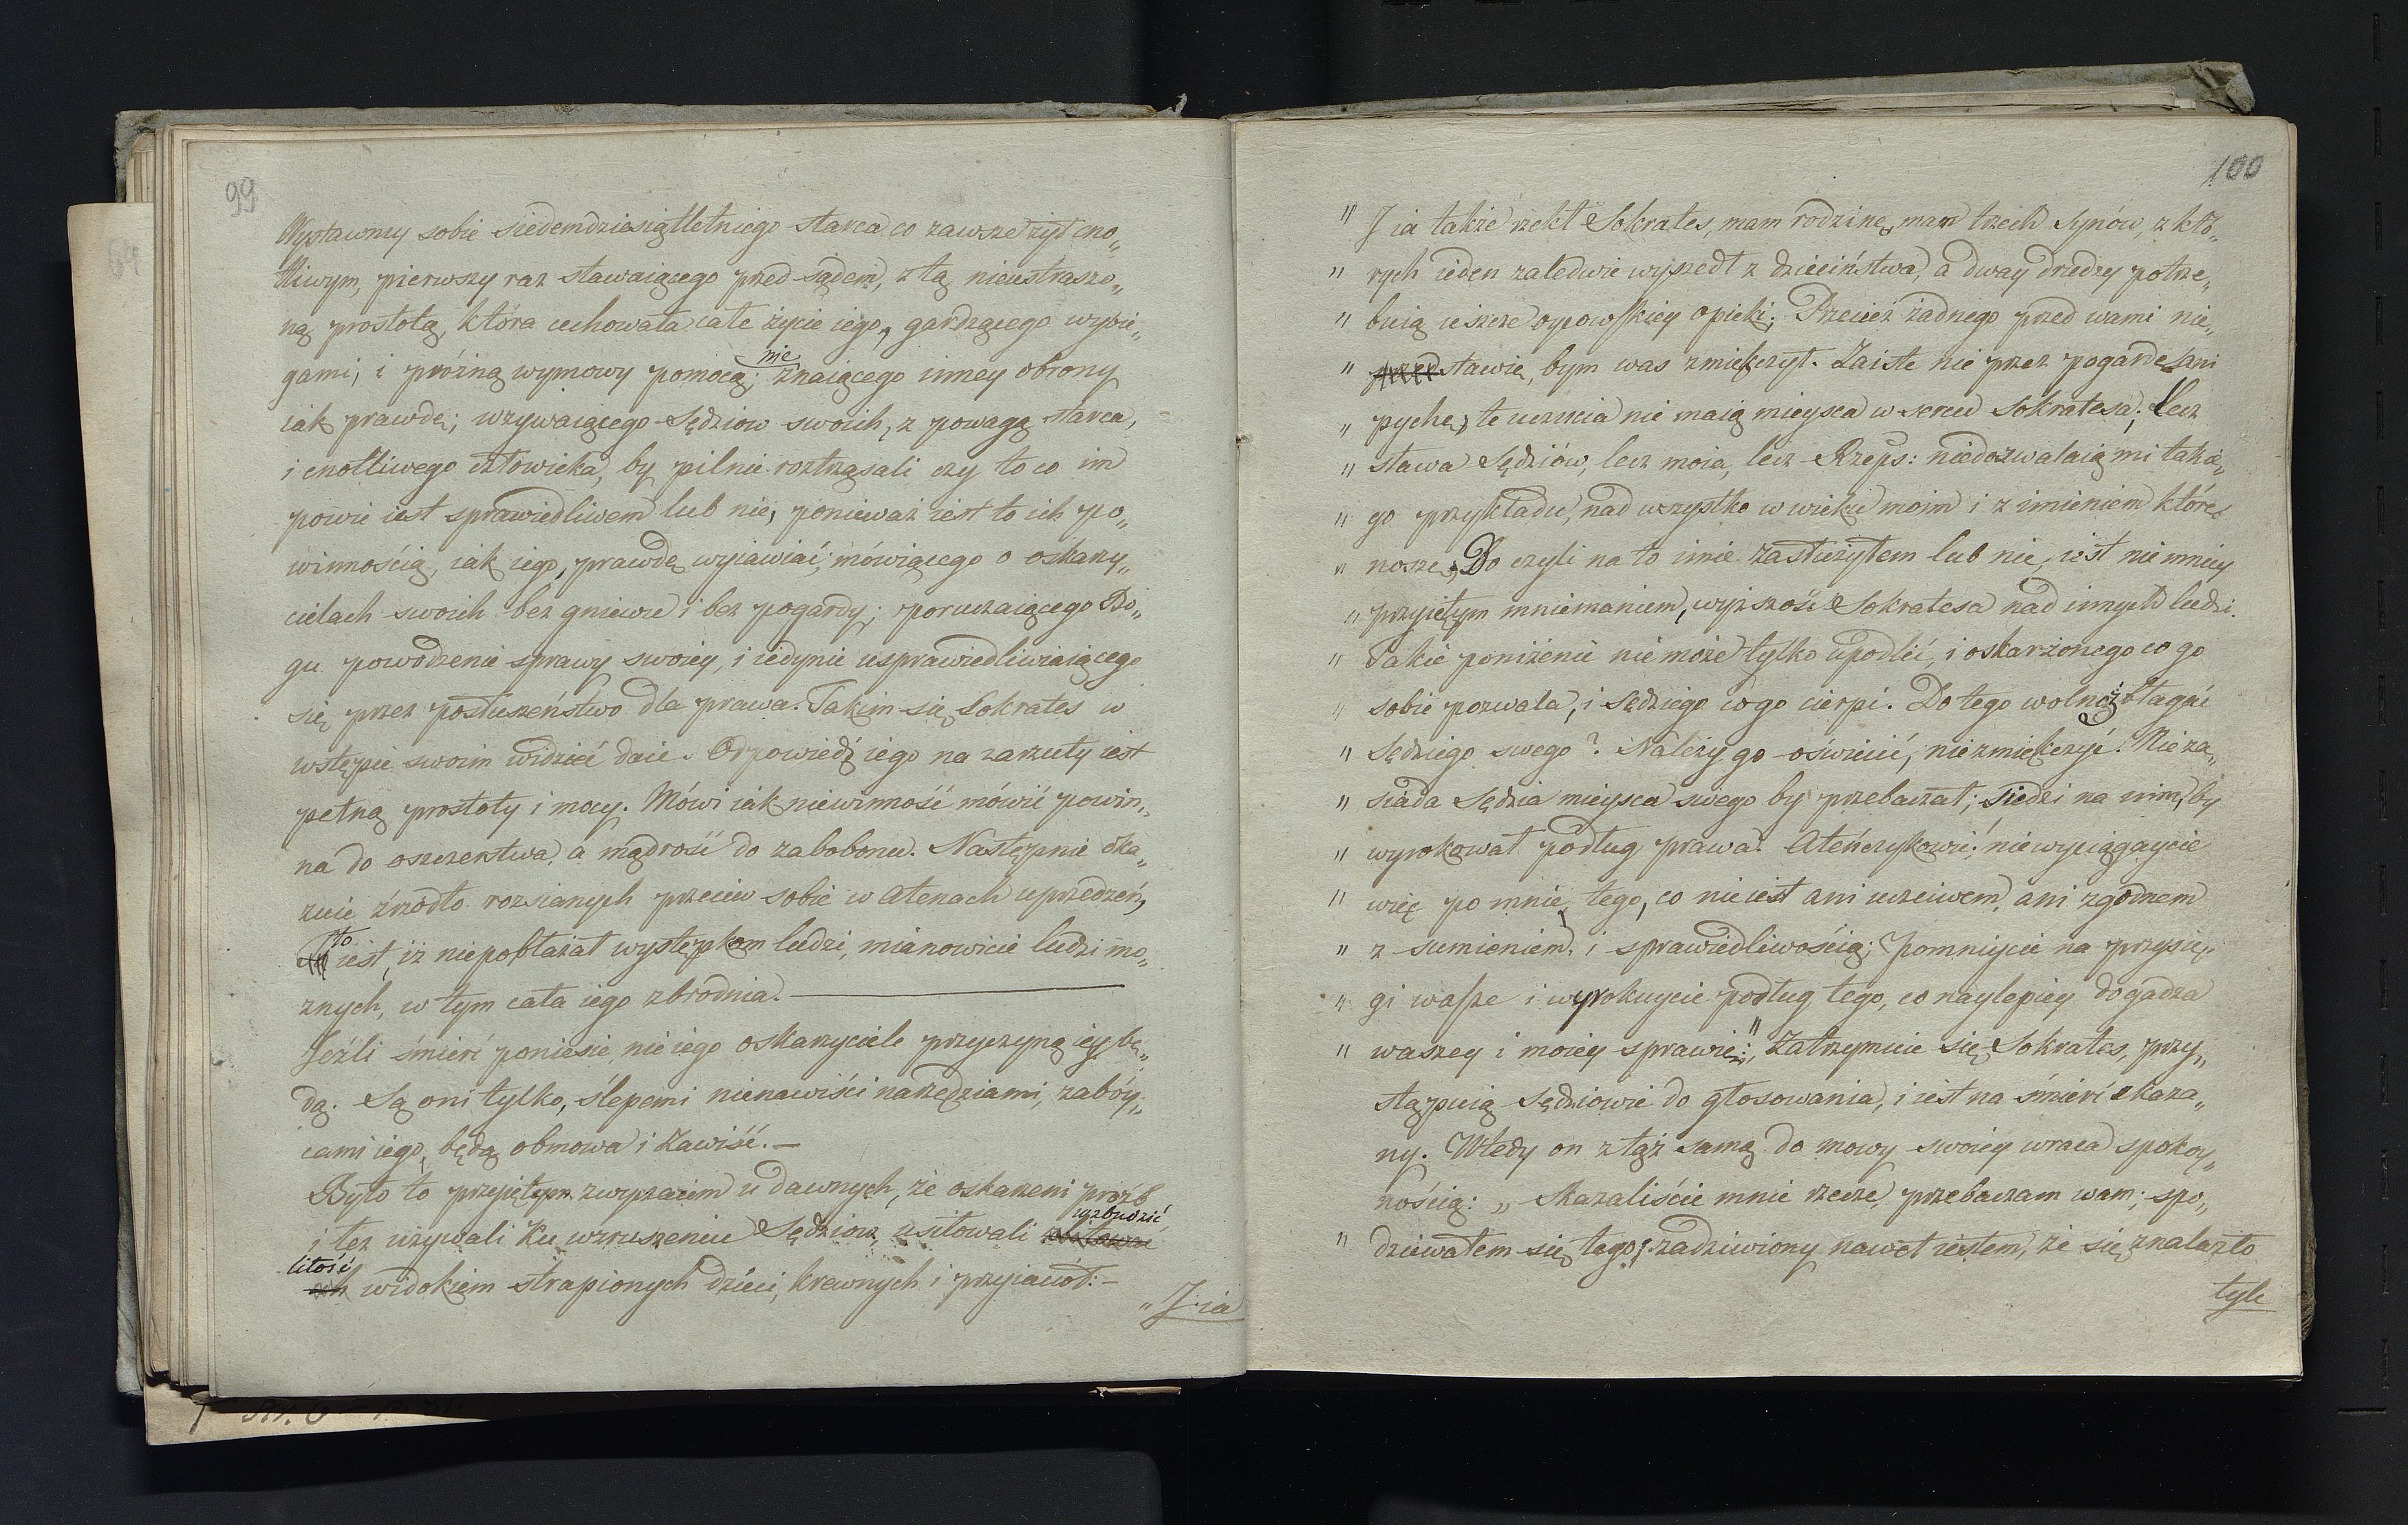 99
Wystawmy sobie siedemdziesiątletniego starca co zawsze żył cno„
tliwym, pierwszy raz stawaiącego przed sądem, z tą nieustraszo„
ną prostotą, która cechowała całe życie iego, gardzącego wybie„
gami, i próżną wymowy pomocą; nie znaiącego inney obrony
iak prawdę; wzywaiącego Sędziow swoich, z powagą starca,
i cnotliwego człowieka, by pilnie roztrząsali czy to co im
powie iest sprawiedliwem lub nie, ponieważ iest to ich po„
winnością, iak iego, prawdę wyiawiać; mówiącego o oskarży„
cielach swoich bez gniewu i bez pogardy; poruczaiącego Bo„
gu powodzenie sprawy swoiey, i iedynie usprawiedliwiaiącego
się przez posłuszeństwo dla prawa. Takim się Sokrates w
wstępie swoim widzieć daie. Odpowiedź iego na zarzuty iest
pełną prostoty i mocy. Mówi iak niewinność mówić powin„
na do oszczerstwa, a mądrość do zabobonu. Następnie oka„
zuie źródło rozsianych przeciw sobie w Atenach uprzedzeń,
to iest, iż niepobłażał występkom ludzi, mianowicie ludzi mo„
żnych, w tym cała iego zbrodnia. —
Jeźli śmierć poniesie, nie iego oskarzyciele przyczyną iey bę„
dą. Są oni tylko, ślepemi nienawiści narzędziami, zabóy„
cami iego, będą obmowa i Zawiść. —
Było to przyiętym zwyczaiem u dawnych, że oskarzeni próźb
i łez używali ku wzruszeniu Sędziow, usiłowali wzbudzić
litość widokiem strapionych dzieci, krewnych i przyiaciół: —
„ J ia
100
" J ia także rzekł Sokrates, mam rodzinę, mam trzech synów, z któ„
" rych ieden zaledwie wyszedł z dzieciństwa, a dway drudzy potrze„
" buią ieszcze oycowskiey opieki; Przecież żadnego przed wami nie„
" stawię, bym was zmiękczył. Zaiste nie przez pogardę ani
" pychę, te uczucia nie maią mieysca w sercu Sokratesa; lecz
" sława Sędziów, lecz moia, lecz Rzeps: niedozwalaią mi takie„
" go przykładu, nad wszystko w wieku moim i z imieniem które
" noszę, Bo czyli na to imie zasłużyłem lub nie, iest nie mniey
" przyiętym mniemaniem, wyższość Sokratesa nad innych ludzi.
" Takie poniżenie nie może tylko upodlić, i oskarżonego co go
" sobie pozwala, i sędziego co go cierpi. Do tego wolnoż błagać
" Sędziego swego? Należy go oświecić, nie zmiękczyć. Nie za„
" siada Sędzia mieysca swego by przebaczał; siedzi na nim, by
" wyrokował podług prawa. Ateńczykowie! niewyciągaycie
" więc po mnie, tego, co nie iest ani uczciwem, ani zgodnem
" z sumieniem, i sprawiedliwością; Pomniycie na przysię„
" gi wasze i wyrokuycie podług tego, co naylepiey dogadza
" waszey i moiey sprawie:" Zatrzymuie się Sokrates, przy„
stąpuią Sędziowie do głosowania, i iest na śmierć skaza„
ny. Wtedy on z tąż samą do mowy swoiey wraca spokoy„
nością: „ Skazaliście mnie rzecze, przebaczam wam; spo„
" dziewałem się tego; zadziwiony nawet iestem, że się znalazło
tyle